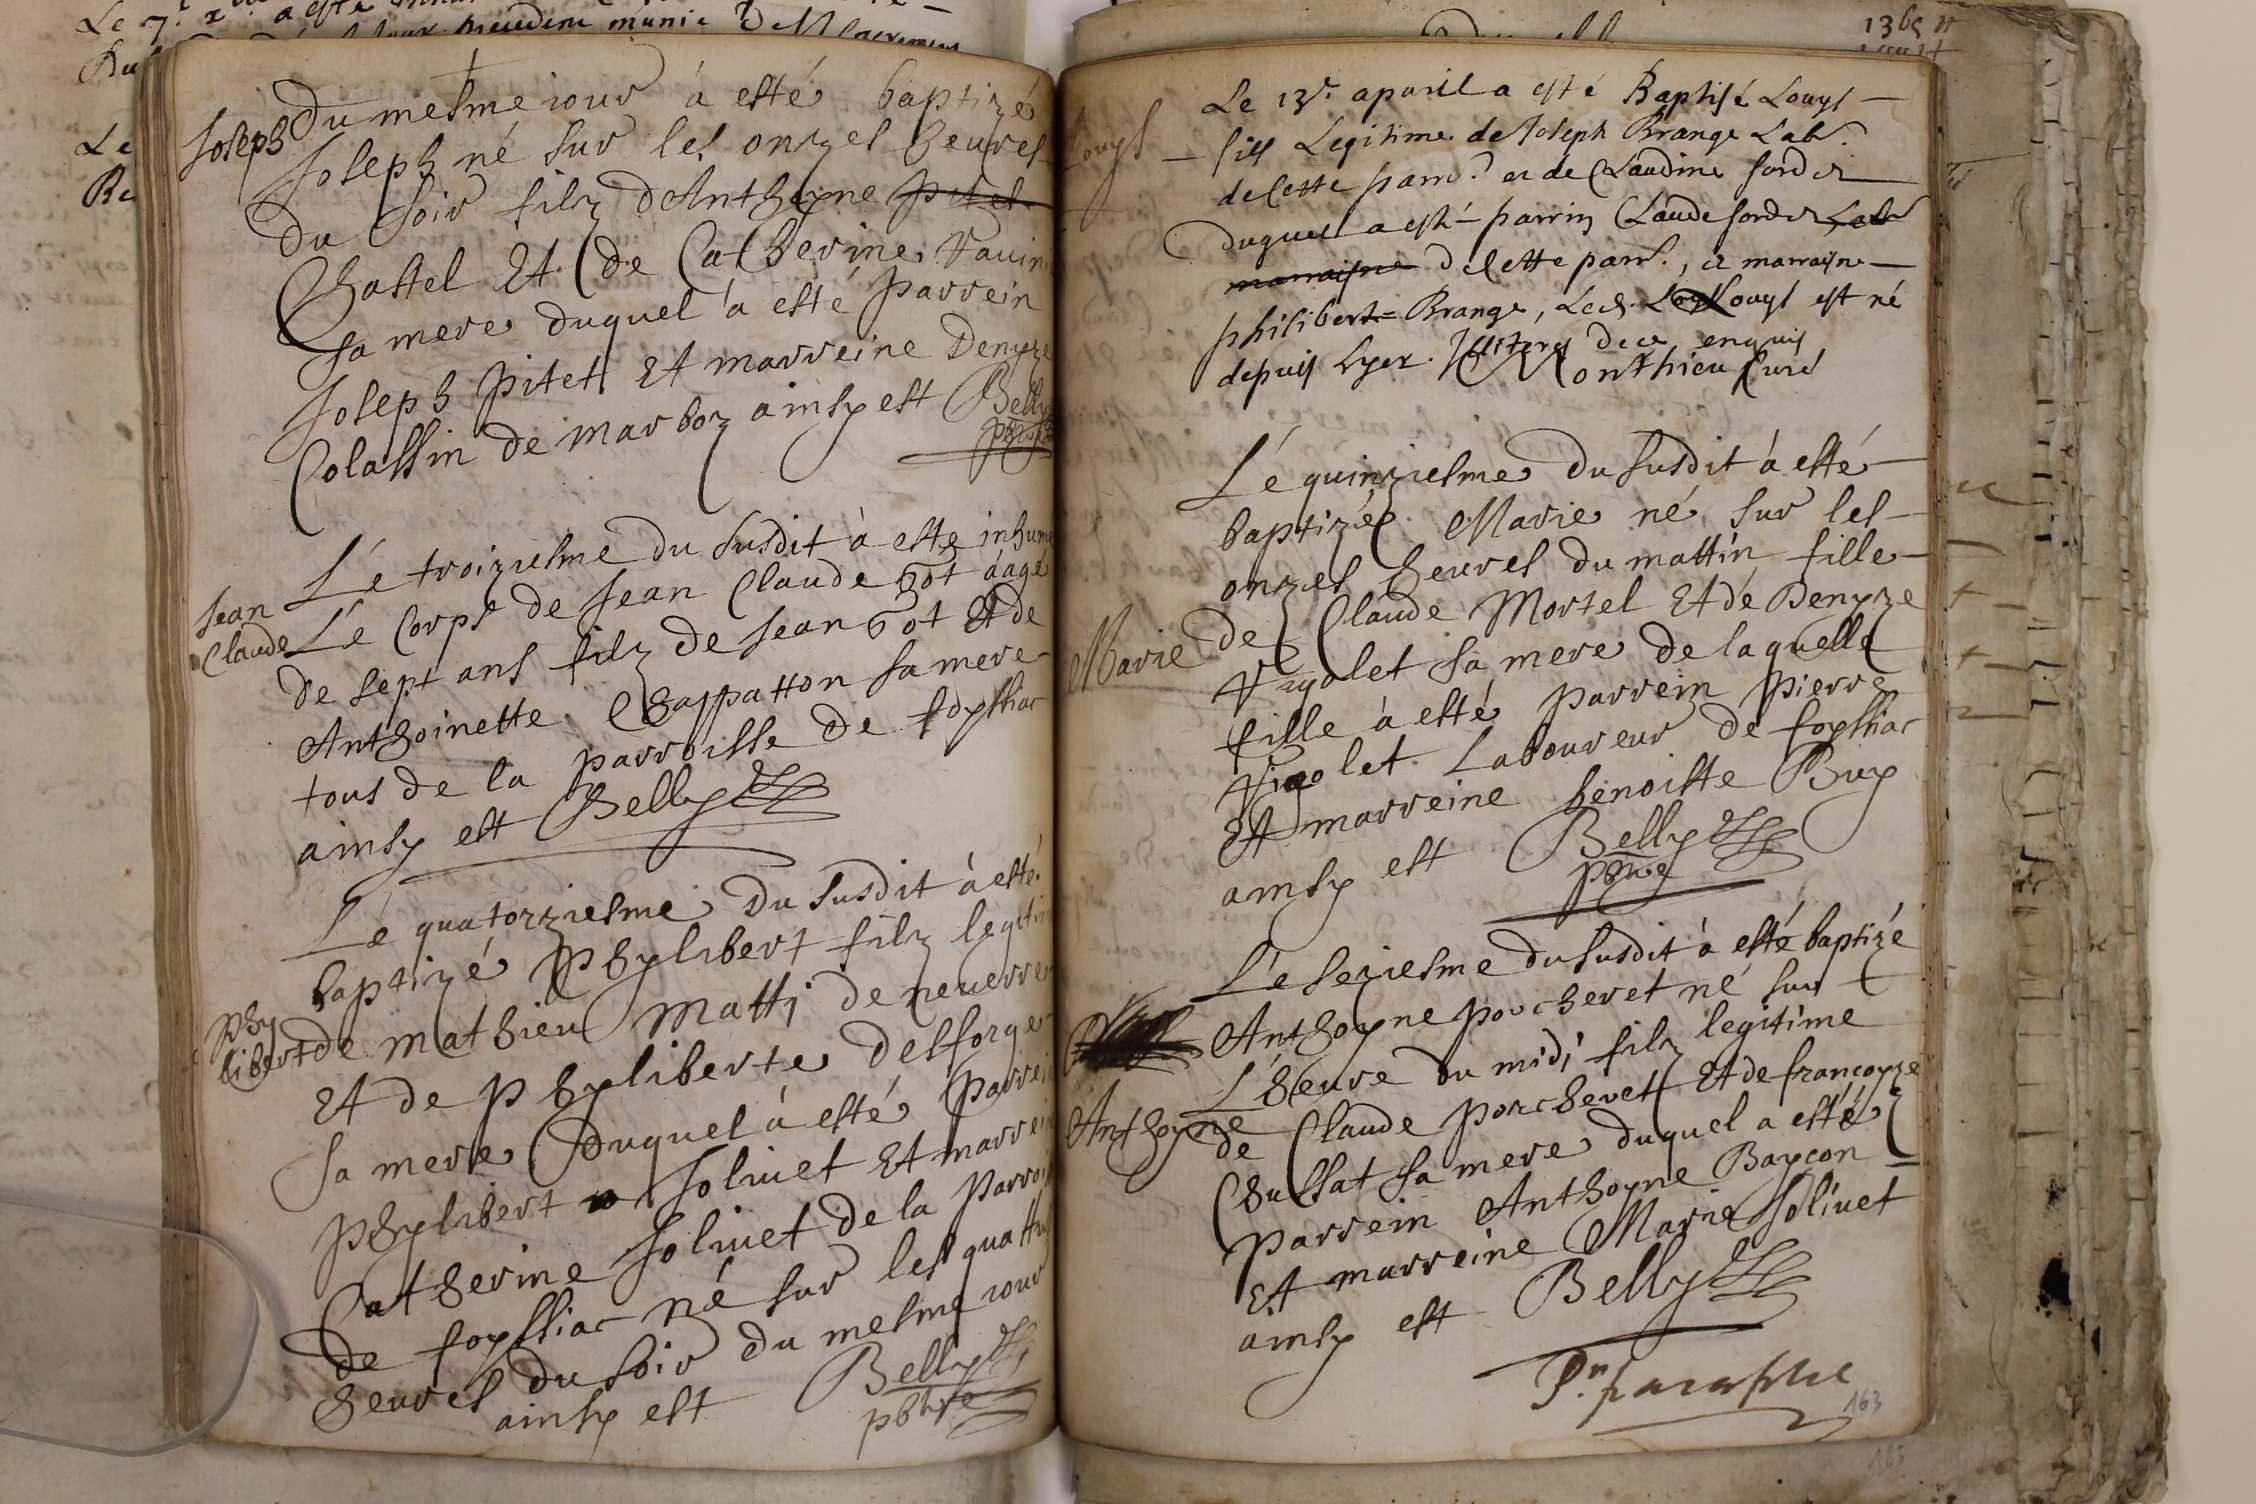 Joseph
Du mesme iour à esté baptizé
Joseph né sur les onzes heures
du soir filz d'Anthoyne pitet
Chastel Et de Catherine
sa mere duquel à esté parrein
Joseph pitet Et marreine Denyze
Colassin de marboz ainsy est Belly
pbre
Jean
Claude
Lé troiziesme du susdit à esté inhumé
Lé Corps de Jean Claude got áagé
de sept ans filz de Jean got Et de
Anthoinette Chappatton sa mere
tous de la parroisse de foyssiac
ainsy est Belly
Phy
libert
Lé quatorziesme du susdit à esté
baptizé Phylibert filz legiti
de mathieu Matti de neuerre
Et de Phyliberte desforge
sa mere Duquel à esté parrei
Phylibert Joliuet Et marrei
Catherine Joliuet de la parroi
de foyssiac né sur les quattre
heures du soir du mesme iour
ainsy est Belly
pbtre
Louys
Le 13e. apuril a esté Baptisé Louys
fils Legitime de Joseph Brange Lab.
de Cette parr. et de Claudine sordet
duquel a esté parrin Claude sordet Lab
marraisne de Cette parr., et marraisne
philibert Brange, Led. Louys est né
depuis hyer. Illiterés de ce enquis
Monthieu Curé
Marie
Lé quinziesme du susdit à esté
baptizéé Marie né sur les
onzes heures du mattin fille
de Claude Mortel Et dé Denyze
Vigolet sa mere de laquelle
fille à esté parrein pierre
Vigolet Laboureur de foyssiac
Et marreine benoiste Buy
ainsy est Belly
pbre
Anthoyne
Lé seziesme du susdit à esté baptizé
Anthoyne porcheret né sur
L'heure du midi filz legitime
de Claude porcheret Et de françoyze
Chussat sa mere duquel a esté
parrein Anthoyne Baycon
Et marreine Marie Joliuet
ainsy est Belly
Pn. paraphe
163
185